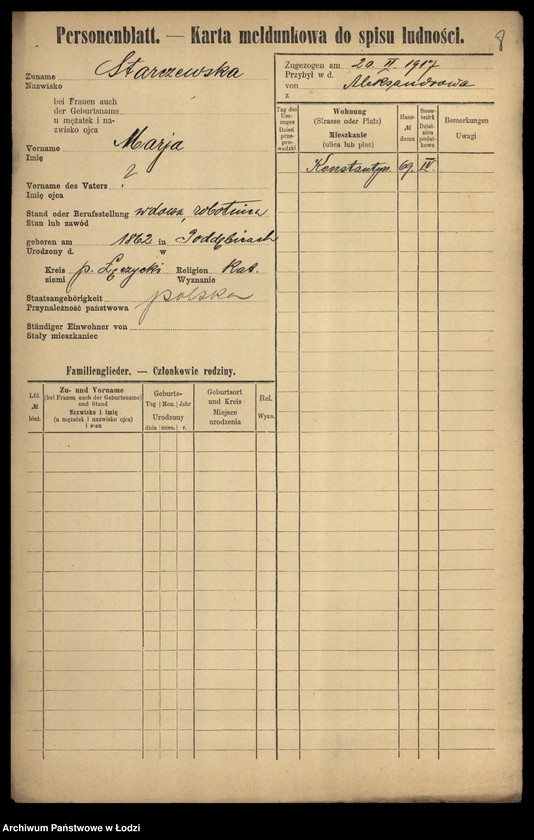 Personenblatt. — Karta meldunkowa do spisu ludności.
8
Zuname Starczewska
Nazwisko
bei Frauen auch
der Geburtsname
u mężatek i na-
zwisko ojca
Vorname Marja
Imię
Vorname des Vaters
Imię ojca
Stand oder Berufsstellung wdowa, robotnica
Stan lub zawód
geboren am 1862 in Poddębicach
Urodzony d. w
Kreis p. Łęczycki Religion Kat.
ziemi Wyznanie
Staatsangehörigkeit polska
Przynależność państwowa
Ständiger Einwohner von
Stały mieszkaniec
Zugezogen am 20 II. 1917
Przybył w d.
von Aleksandrowa
z
Tag des Um-zuges Dzień prze-prowadzki
Wohnung
(Strasse oder Platz)
Mieszkanie
(ulica lub plac)
Haus-
№
domu
Steuer-
bezirk
Dziel-
nica
podat-
kowa
Bemerkungen
Uwagi
Konstantyn. 69. IV.
Familienglieder. — Członkowie rodziny.
Lfd.
№
bież.
Zu- und Vorname
(bei Frauen auch der Geburtsname)
und Stand
Nazwisko i imię
(u mężatek i nazwisko ojca)
i stan
Geburts-
Tag Mon. Jahr
Urodzony
dnia mies. r.
Geburtsort
und Kreis
Miejsce
urodzenia
Rel.
Wyzn.
Archiwum Państwowe w Łodzi